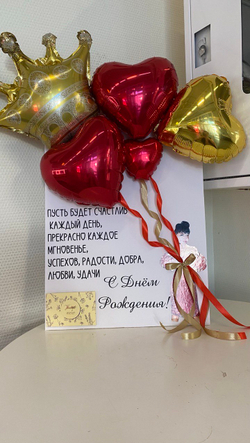 ПУСТЬ БУДЕТ СЧАСТЛИВ
КАЖДЫЙ ДЕНЬ,
ПРЕКРАСНО КАЖДОЕ
МГНОВЕНЬЕ,
УСПЕХОВ, РАДОСТИ, ДОБРА,
ЛЮБВИ, УДАЧИ
С Днём
Рождения!